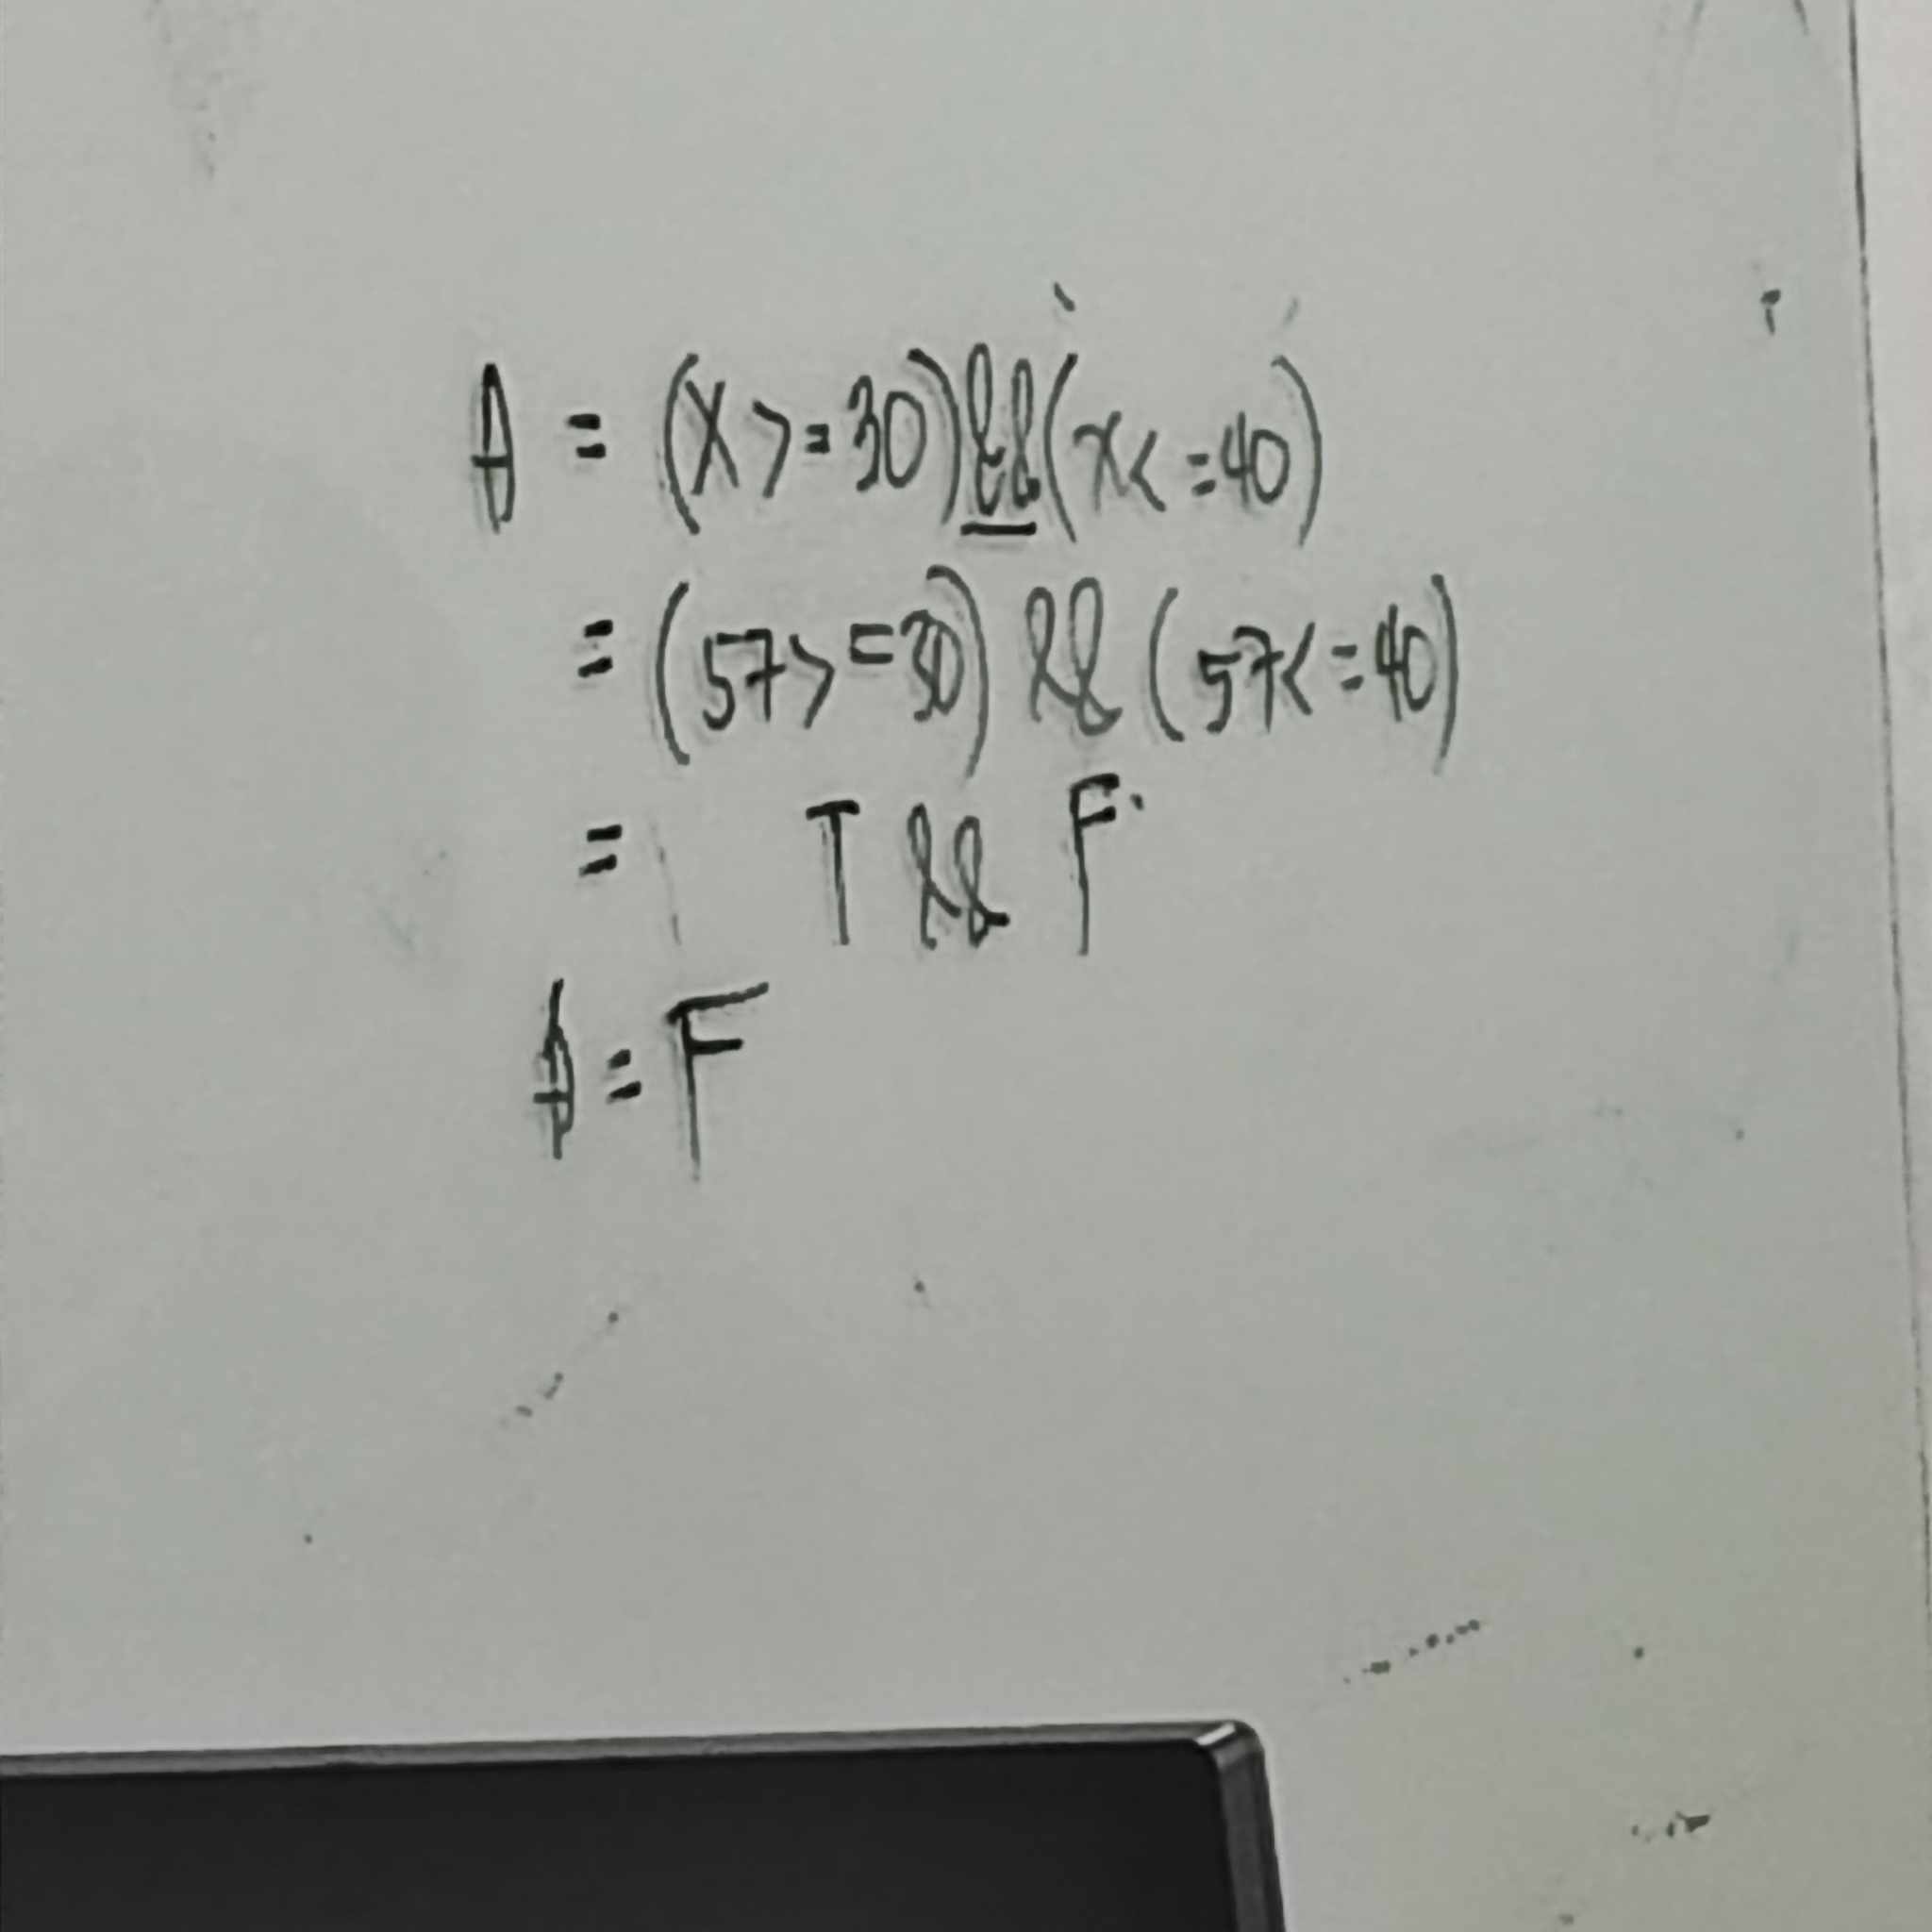 A = (X>=30)&&(x<=40)
= (57>=30) && (57<=40)
= T && F
A = F